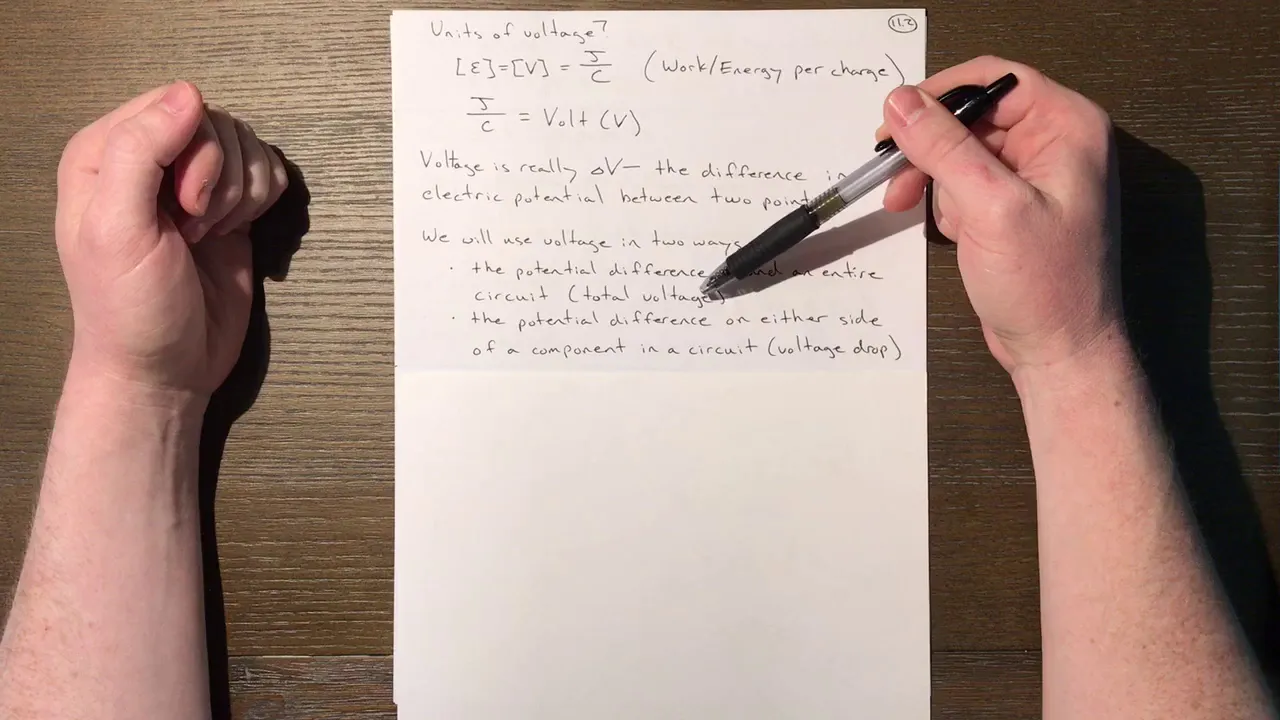 Units of voltage?
11.2
[ε]=[V] = J/C (Work/Energy per charge)
J/C = Volt (V)
Voltage is really ΔV— the difference in
electric potential between two point
We will use voltage in two ways
· the potential difference an entire
circuit (total voltage)
· the potential difference on either side
of a component in a circuit (voltage drop)